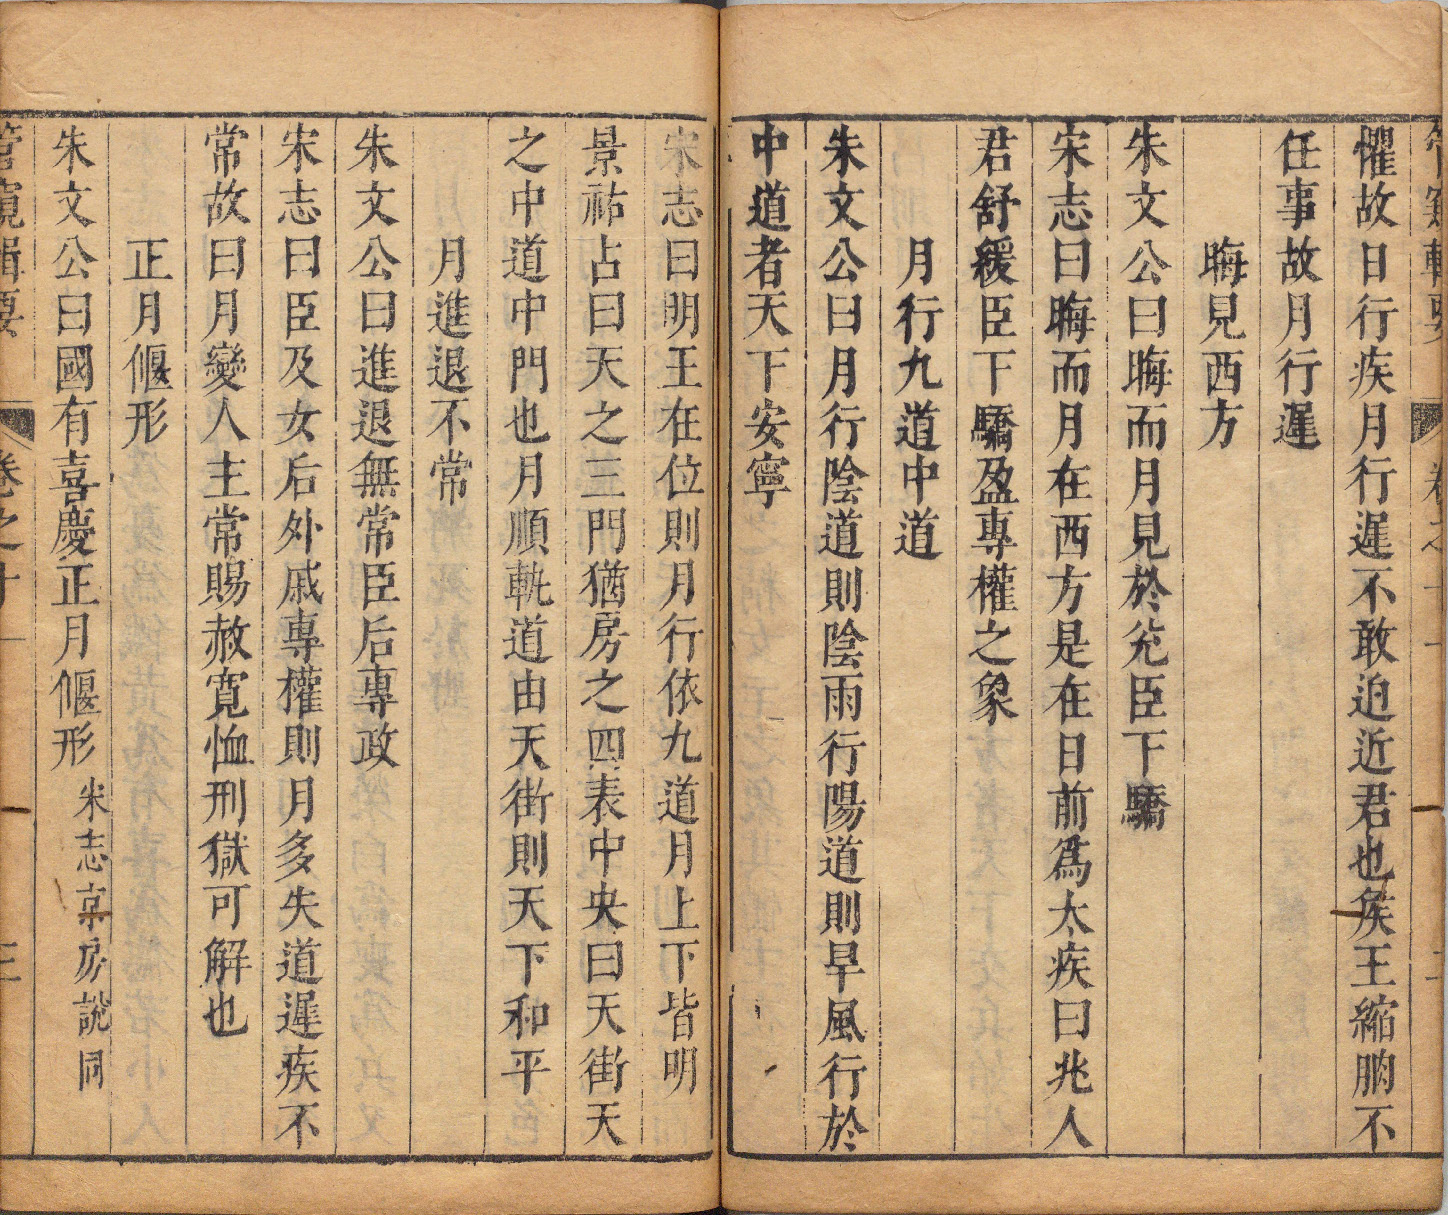 懼故日行疾月行遲不敢迫近君也矦王縮朒不
任事故月行遲
晦見西方
朱文公曰晦而月見於兊臣下驕
宋志曰晦而月在西方是在日前爲太疾曰兆人
君舒緩臣下驕盈專權之象
月行九道中道
朱文公曰月行陰道則陰雨行陽道則旱風行於
中道者天下安寧
宋志曰明王在位則月行依九道月上下皆明
景祐占曰天之三門猶房之四表中央曰天街天
之中道中門也月順軌道由天街則天下和平
月進退不常
朱文公曰進退無常臣后專政
宋志曰臣及女后外戚專權則月多失道遲疾不
常故曰月變人主常賜赦寬恤刑獄可解也
正月偃形
朱文公曰國有喜慶正月偃形 宋志京房說同
管窺輯要 卷之十一 三